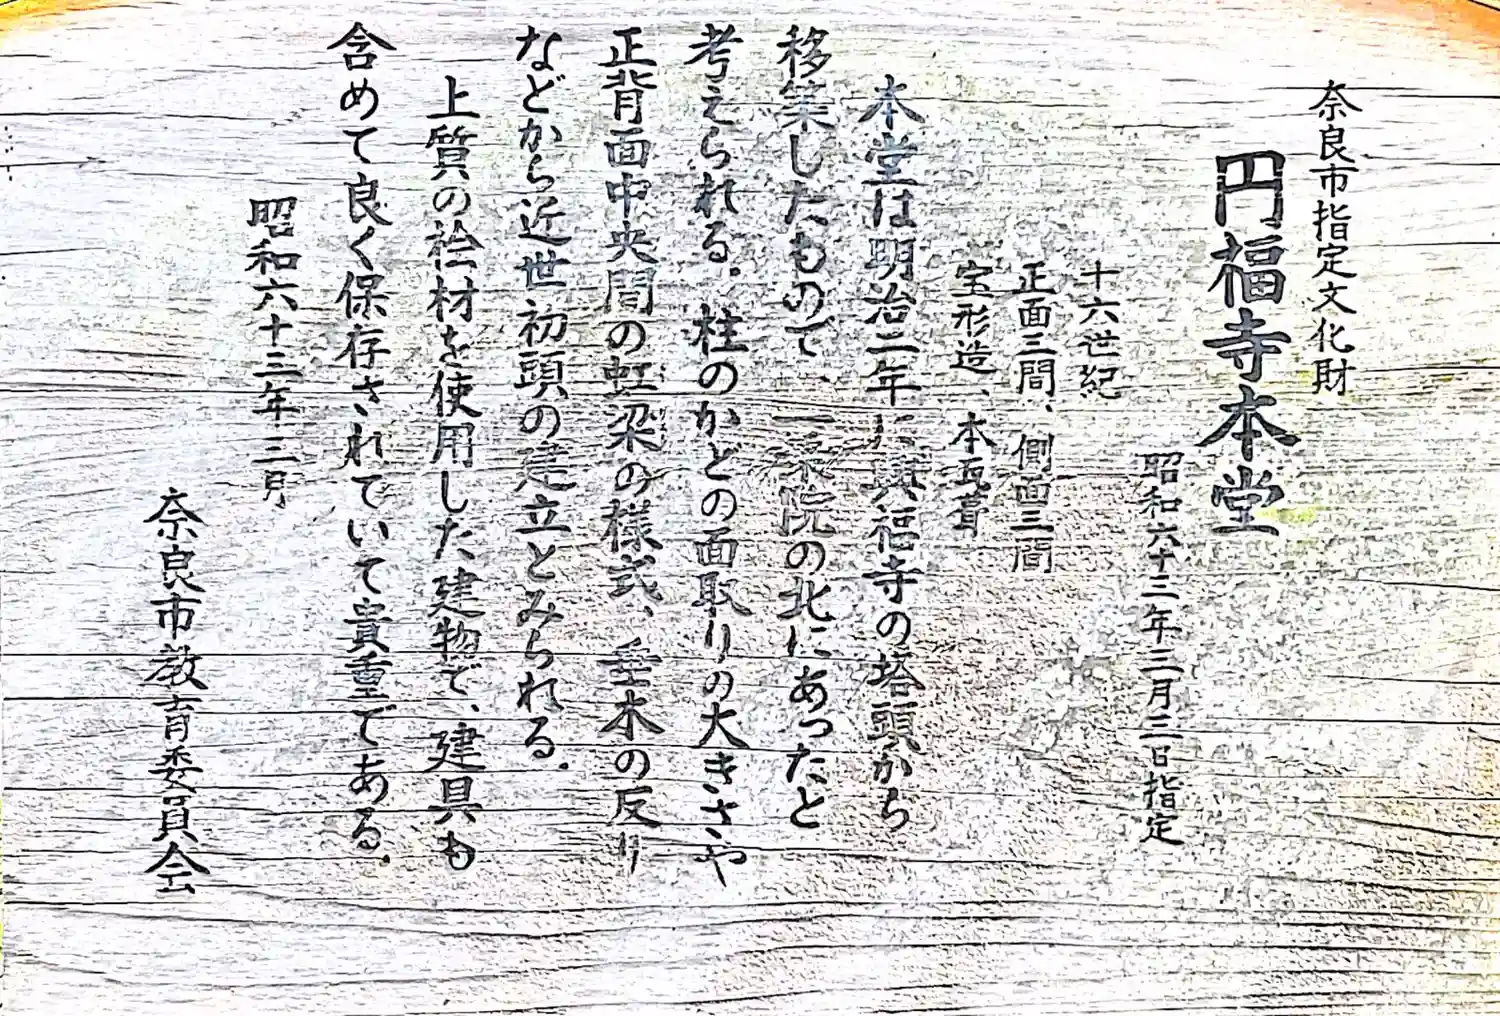 奈良市指定文化財
円福寺本堂
昭和六十三年三月三日指定
十六世紀
正面三間、側面三間
宝形造、本瓦葺
本堂は明治二年に興福寺の塔頭から
移築したもので、一乗院の北にあったと
考えられる。柱のかどの面取りの大きさや
正背面中央間の虹梁の様式、垂木の反り
などから近世初頭の建立とみられる。
上質の桧材を使用した建物で、建具も
含めて良く保存されていて貴重である。
昭和六十三年三月
奈良市教育委員会